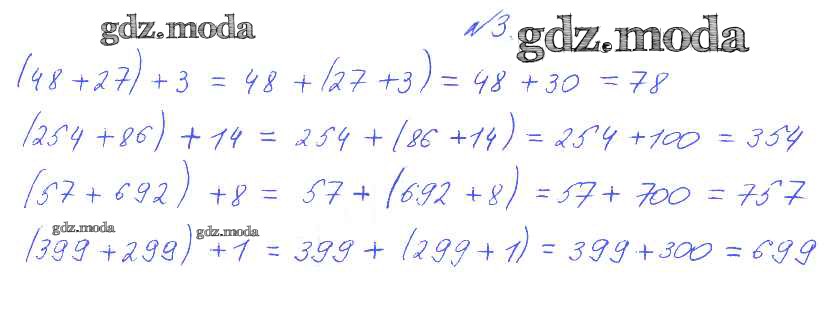 gdz.moda
№3. gdz.moda
(48 + 27) + 3 = 48 + (27 + 3) = 48 + 30 = 78
(254 + 86) + 14 = 254 + (86 + 14) = 254 + 100 = 354
(57 + 692) + 8 = 57 + (692 + 8) = 57 + 700 = 757
gdz.moda gdz.moda
(399 + 299) + 1 = 399 + (299 + 1) = 399 + 300 = 699